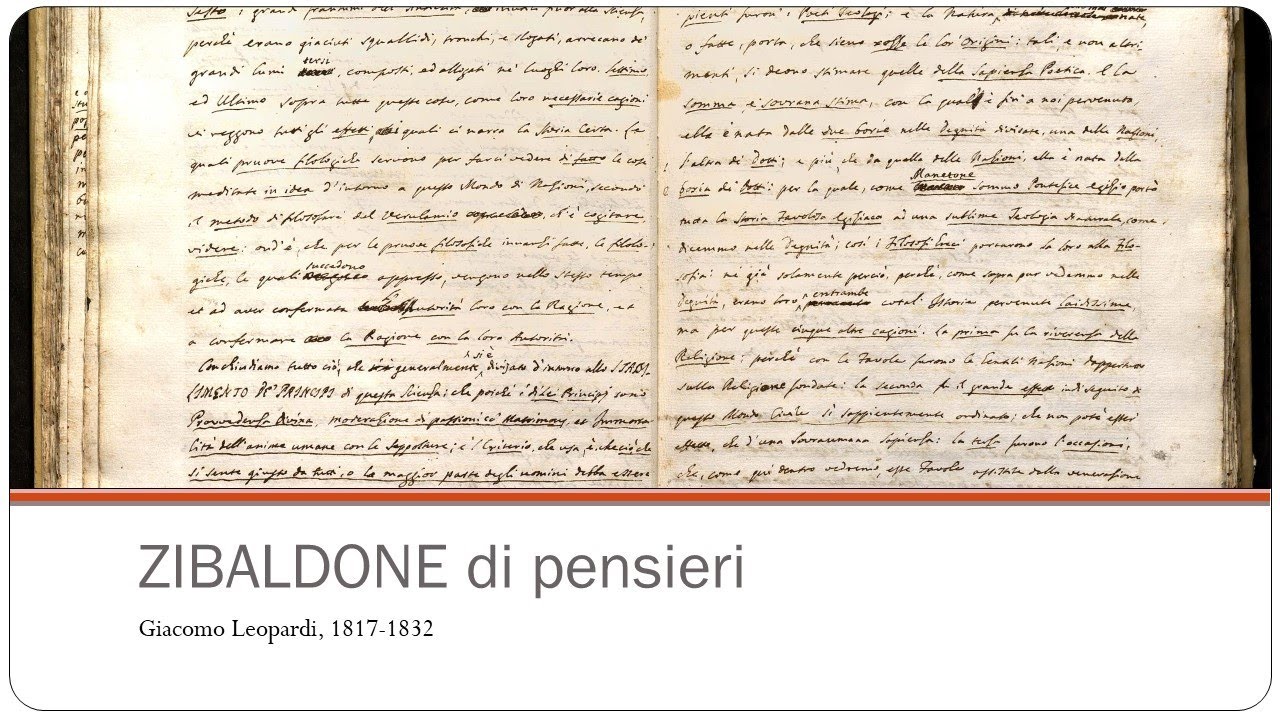 perchè erano giaciuti squallidi, tronchi, e slogati, arrecano de'
grandi lumi tersi, composti, ed allogati ne' luoghi loro. Settimo,
ed Ultimo sopra tutte queste cose, come loro necessarie cagioni
vi reggono tutti gli effetti, i quali ci narra la Storia Certa. Le
quali pruove filologiche servono per farci vedere di fatto le cose
meditate in idea d'intorno a questo Mondo di Nazioni, secondo
il metodo di filosofare del Verulamio, ch'è cogitare,
videre: ond'è, che per le pruove filosofiche innanzi fatte, le filolo-
giche, le quali succedono appresso, vengono nello stesso tempo
et ad aver confermata l'Autorità loro con la Ragione, et
a confermare la Ragione con la loro Autorità.
Conchiudiamo tutto ciò, che generalmente si è divisato d'intorno allo STABI-
LIMENTO DE' PRINCIPJ di questa Scienza; che poichè i di lei Principj sono
Provvedenza Divina, moderazione di passioni co' Matrimonj, et Immorta-
lità dell'anime umane con le Seppolture; e 'l Criterio, che usa, è, che ciò che
si sente giusto da tutti, o la maggior parte degli uomini debba essere
pienti furon' i Poeti Teologi; e la Natura
o fatte, porta, che sieno rozze le lor Origini; tali, e non altri-
menti, si deono stimare quelle della Sapienza Poetica. E la
somma e sovrana stima, con la qual è fin' a noi pervenuta,
ella è nata dalle due borie nelle Degnità divisate, una delle Nazioni,
l'altra de' Dotti; e più, che da quella delle Nazioni, ella è nata dalla
boria de' Dotti: per la quale, come Manetone Sommo Pontefice egizio portò
tutta la Storia Favolosa Egiziaca ad una sublime Teologia Naturale, come
dicemmo nelle Degnità; così i Filosofi Greci portarono la loro alla Filo-
sofia: nè già solamente perciò, perchè, come sopra pur vedemmo nelle
Degnità, erano loro entrambe cotal' Istorie pervenute laidissime,
ma per queste cinque altre cagioni. La prima fu la riverenza della
Religione: perchè con le Favole furono le Gentili Nazioni dappertutto
sulla Religione fondate: la seconda fu il grande effetto indi seguito
questo Mondo Civile sì sappientemente ordinato; che non potè esser
effetto, che d'una Sovraumana Sapienza: la terza furono l'occasioni,
che, come qui dentro vedremo, esse Favole assistite dalla venerazione
ZIBALDONE di pensieri
Giacomo Leopardi, 1817-1832